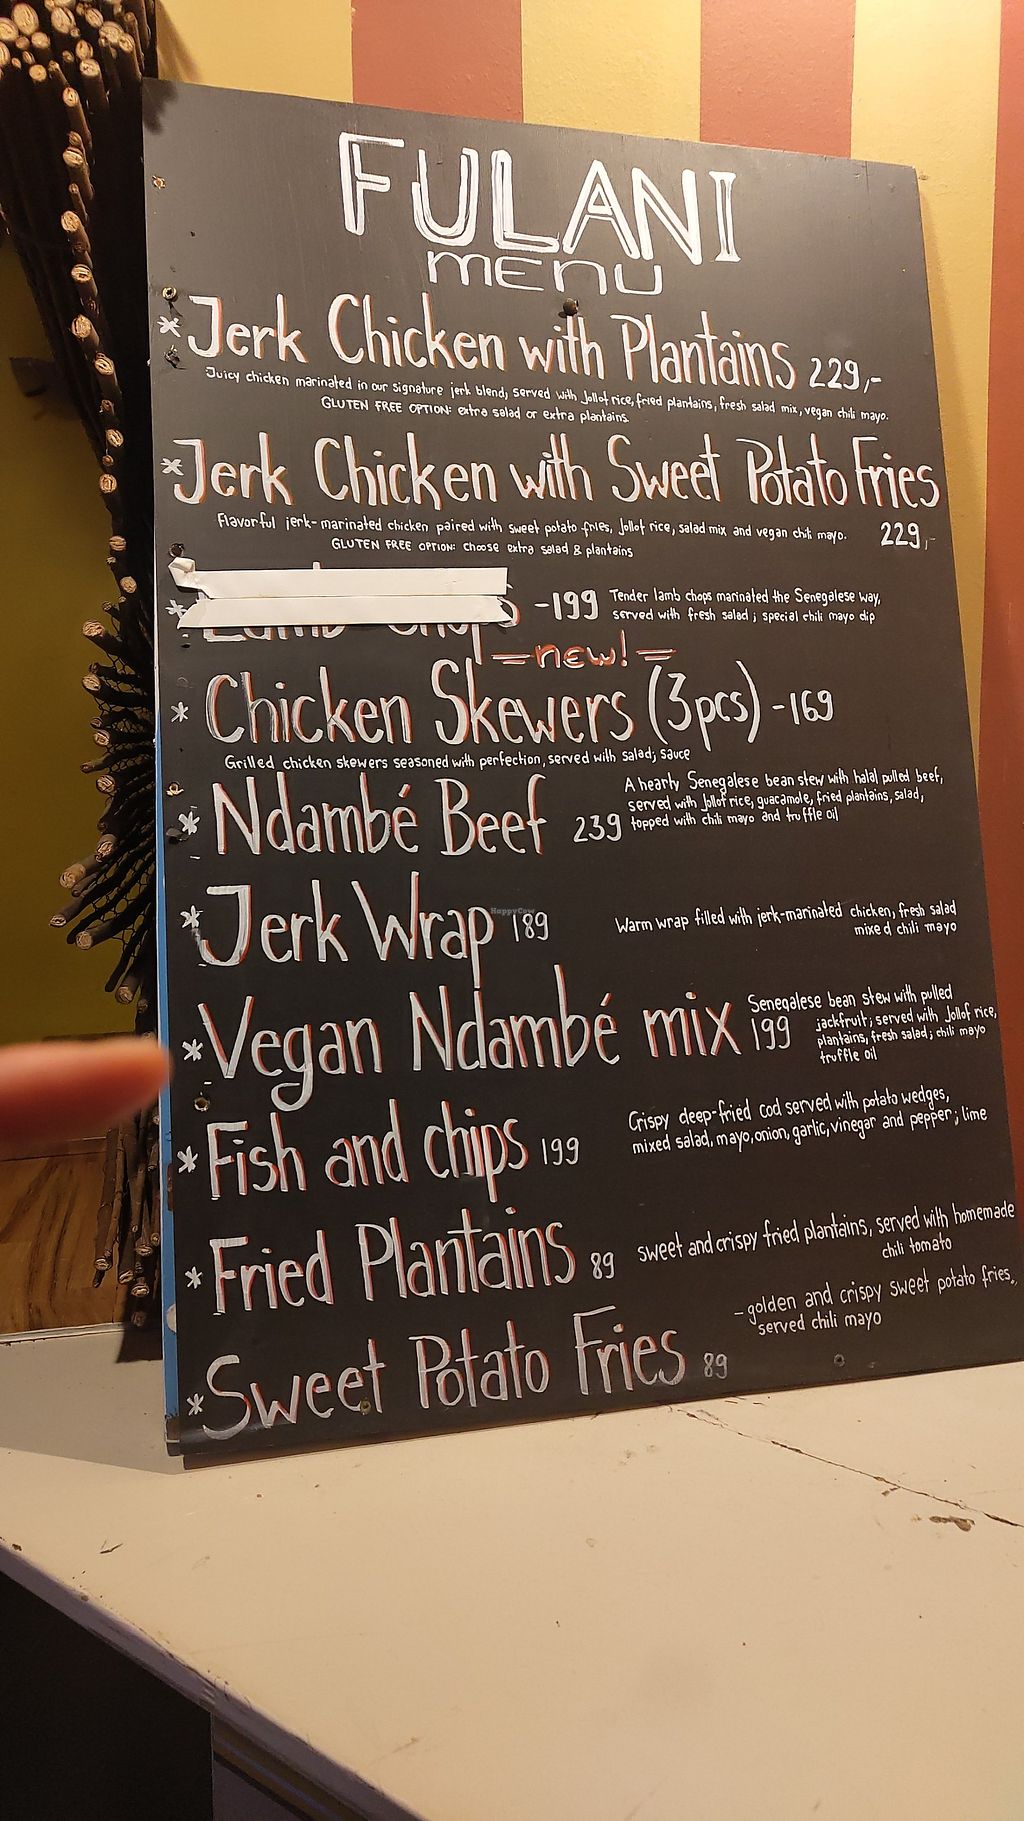 FULANI
MENU
* Jerk Chicken with Plantains 229,-
Juicy chicken marinated in our signature jerk blend, served with Jollof rice, fried plantains, fresh salad mix, vegan chili mayo.
GLUTEN FREE OPTION: extra salad or extra plantains.
* Jerk Chicken with Sweet Potato Fries
Flavorful jerk-marinated chicken paired with sweet potato fries, Jollof rice, salad mix and vegan chili mayo. 229,-
GLUTEN FREE OPTION: choose extra salad & plantains
* Lamb Chops -199 Tender lamb chops marinated the Senegalese way,
served with fresh salad ; special chili mayo dip
=new!=
* Chicken Skewers (3pcs) -169
Grilled chicken skewers seasoned with perfection, served with salad; sauce
* Ndambé Beef 239 A hearly Senegalese bean stew with halal pulled beef,
served with Jollof rice, guacamole, fried plantains, salad,
topped with chili mayo and truffle oil
* Jerk Wrap 189 Warm wrap filled with jerk-marinated chicken, fresh salad
mixed chili mayo
* Vegan Ndambé mix 199 Senegalese bean stew with pulled
jackfruit; served with Jollof rice,
plantains, fresh salad; chili mayo
truffle oil
* Fish and chips 199 Crispy deep-fried cod served with potato wedges,
mixed salad, mayo, onion, garlic, vinegar and pepper; lime
* Fried Plantains 89 sweet and crispy fried plantains, served with homemade
chili tomato
* Sweet Potato Fries 89 -golden and crispy sweet potato fries.
served chili mayo
HappyCow